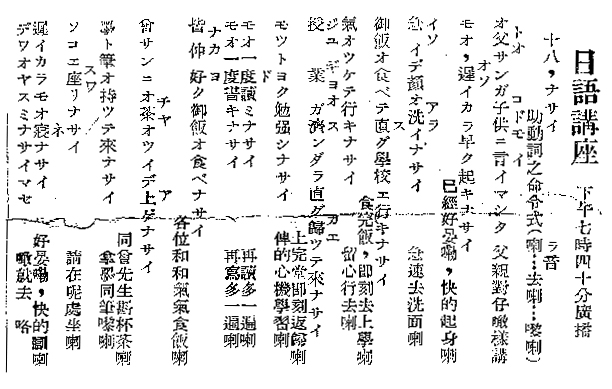 日語講座 下午七時四十分廣播
十八,ナサイ ラ音
助動詞之命令式(喇…去喇…嚟喇)
トオ コドモイ
オ父サンガ子供ニ言イマシタ 父親對仔噉樣講
オソ
モオ,遲イカラ早ク起キナサイ 已經好晏嘞,快的起身喇
イソ アラ
急イデ顔オ洗イナサイ 急速去洗面喇
ス
御飯オ食ベテ直グ學校エ行キナサイ 食完飯,即刻去上學喇
氣オツケテ行キナサイ 留心行去喇
ジュギョオス カエ
授業ガ濟ンダラ直グ歸ツテ來ナサイ 上完堂即刻返歸喇
モツトヨク勉强シナサイ 俾的心機學習喇
ド
モオ一度讀ミナサイ 再讀多一遍喇
モオ一度書キナサイ 再寫多一遍喇
ナカヨ
皆仲好ク御飯オ食ベナサイ 各位和和氣氣食飯喇
チヤ ア
曾サンニオ茶オツイデ上ゲナサイ 同曾先生斟杯茶喇
墨ト筆オ持ツテ來ナサイ 拿墨同筆嚟喇
スワ
ソコエ座リナサイ 請在呢處坐喇
ネ
遲イカラモオ寢ナサイ 好晏嘞,快的瞓喇
デワオヤスミナサイマセ 噉就去 咯